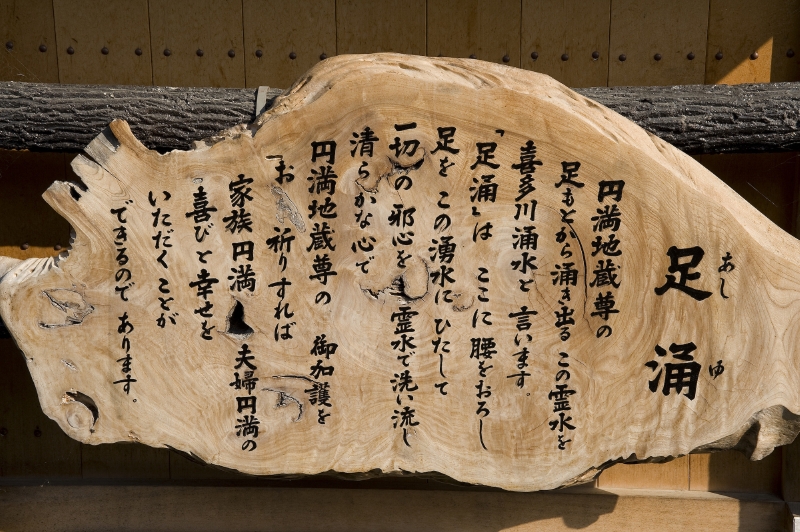 足涌
あし ゆ
円満地蔵尊の
足もとから涌き出る この霊水を
喜多川涌水と 言います。
「足涌」は ここに腰をおろし
足を この湧水にひたして
一切の 邪心を 霊水で洗い流し
清らかな心で
円満地蔵尊の 御加護を
「お祈りすれば
家族円満 夫婦円満の
喜びと幸せを
いただくことが
できるので あります。